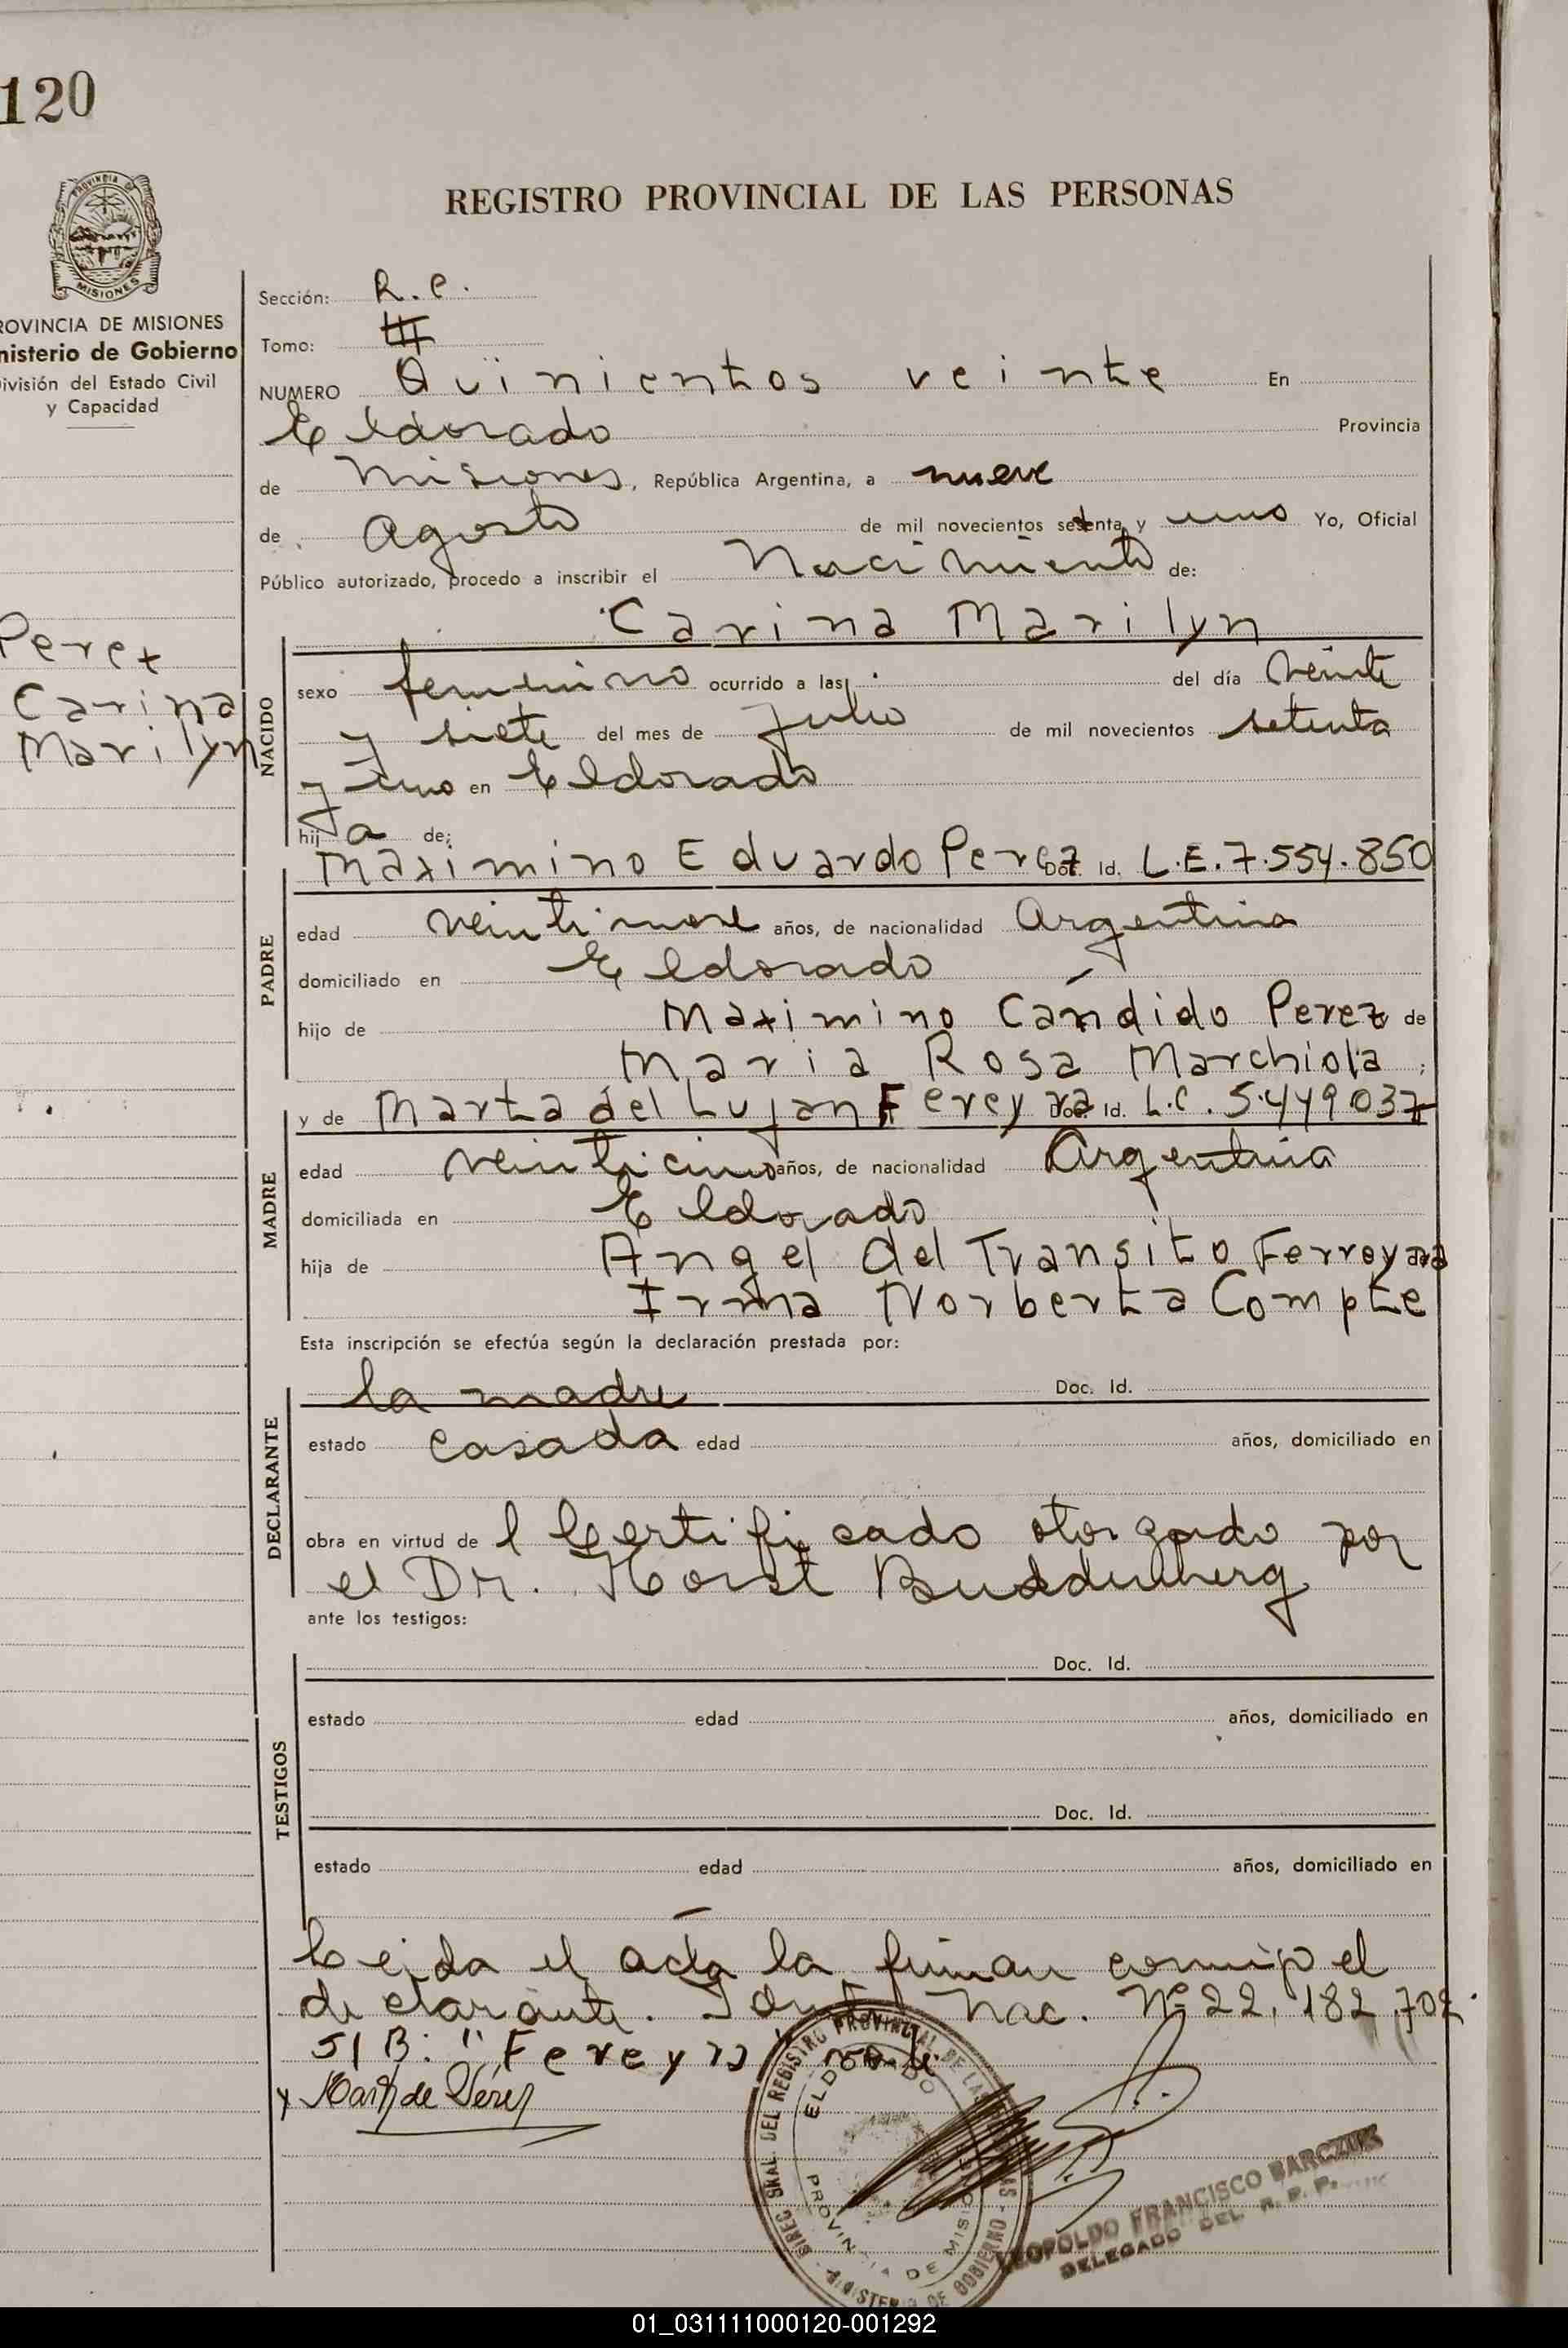 120
REGISTRO PROVINCIAL DE LAS PERSONAS
MISIONES
ROVINCIA DE MISIONES
nisterio de Gobierno
ivisión del Estado Civil
y Capacidad
Sección: R.C.
Tomo: III
NUMERO Quinientos veinte En
Eldorado Provincia
de Misiones, República Argentina, a nueve
de Agosto de mil novecientos setenta y uno Yo, Oficial
Público autorizado, procedo a inscribir el Nacimiento de:
Perez
Carina
Marilyn
NACIDO
Carina Marilyn
sexo femenino ocurrido a las del día veinte
y siete del mes de Julio de mil novecientos setenta
y uno en Eldorado
hija de:
PADRE
Maximino Eduardo Perez Doc. Id. L.E. 7.554.850
edad veintinueve años, de nacionalidad Argentina
domiciliado en Eldorado
hijo de Maximino Cándido Perez de
Maria Rosa Marchiola ;
MADRE
y de Marta del Lujan Fereyra Doc. Id. L.C. 5.449.037
edad veinticinco años, de nacionalidad Argentina
domiciliada en Eldorado
hija de Angel del Transito Ferreyra
Irma Norberta Compte
Esta inscripción se efectúa según la declaración prestada por:
DECLARANTE
la madre Doc. Id.
estado casada edad años, domiciliado en
obra en virtud del Certificado otorgado por
el Dr. Horst Buddenberg
ante los testigos:
TESTIGOS
Doc. Id.
estado edad años, domiciliado en
Doc. Id.
estado edad años, domiciliado en
Leida el acta la firman conmigo el
declarante. Ident. Nac. Nº 22.182.702.
S/B: "Fereyra" vale
DIREC. GRAL. DEL REGISTRO PROVINCIAL DE LAS PERSONAS - MINISTERIO DE GOBIERNO
ELDORADO
PROVINCIA DE MISIONES
LEOPOLDO FRANCISCO BARCZUK
DELEGADO DEL R. P. P.
01_031111000120-001292